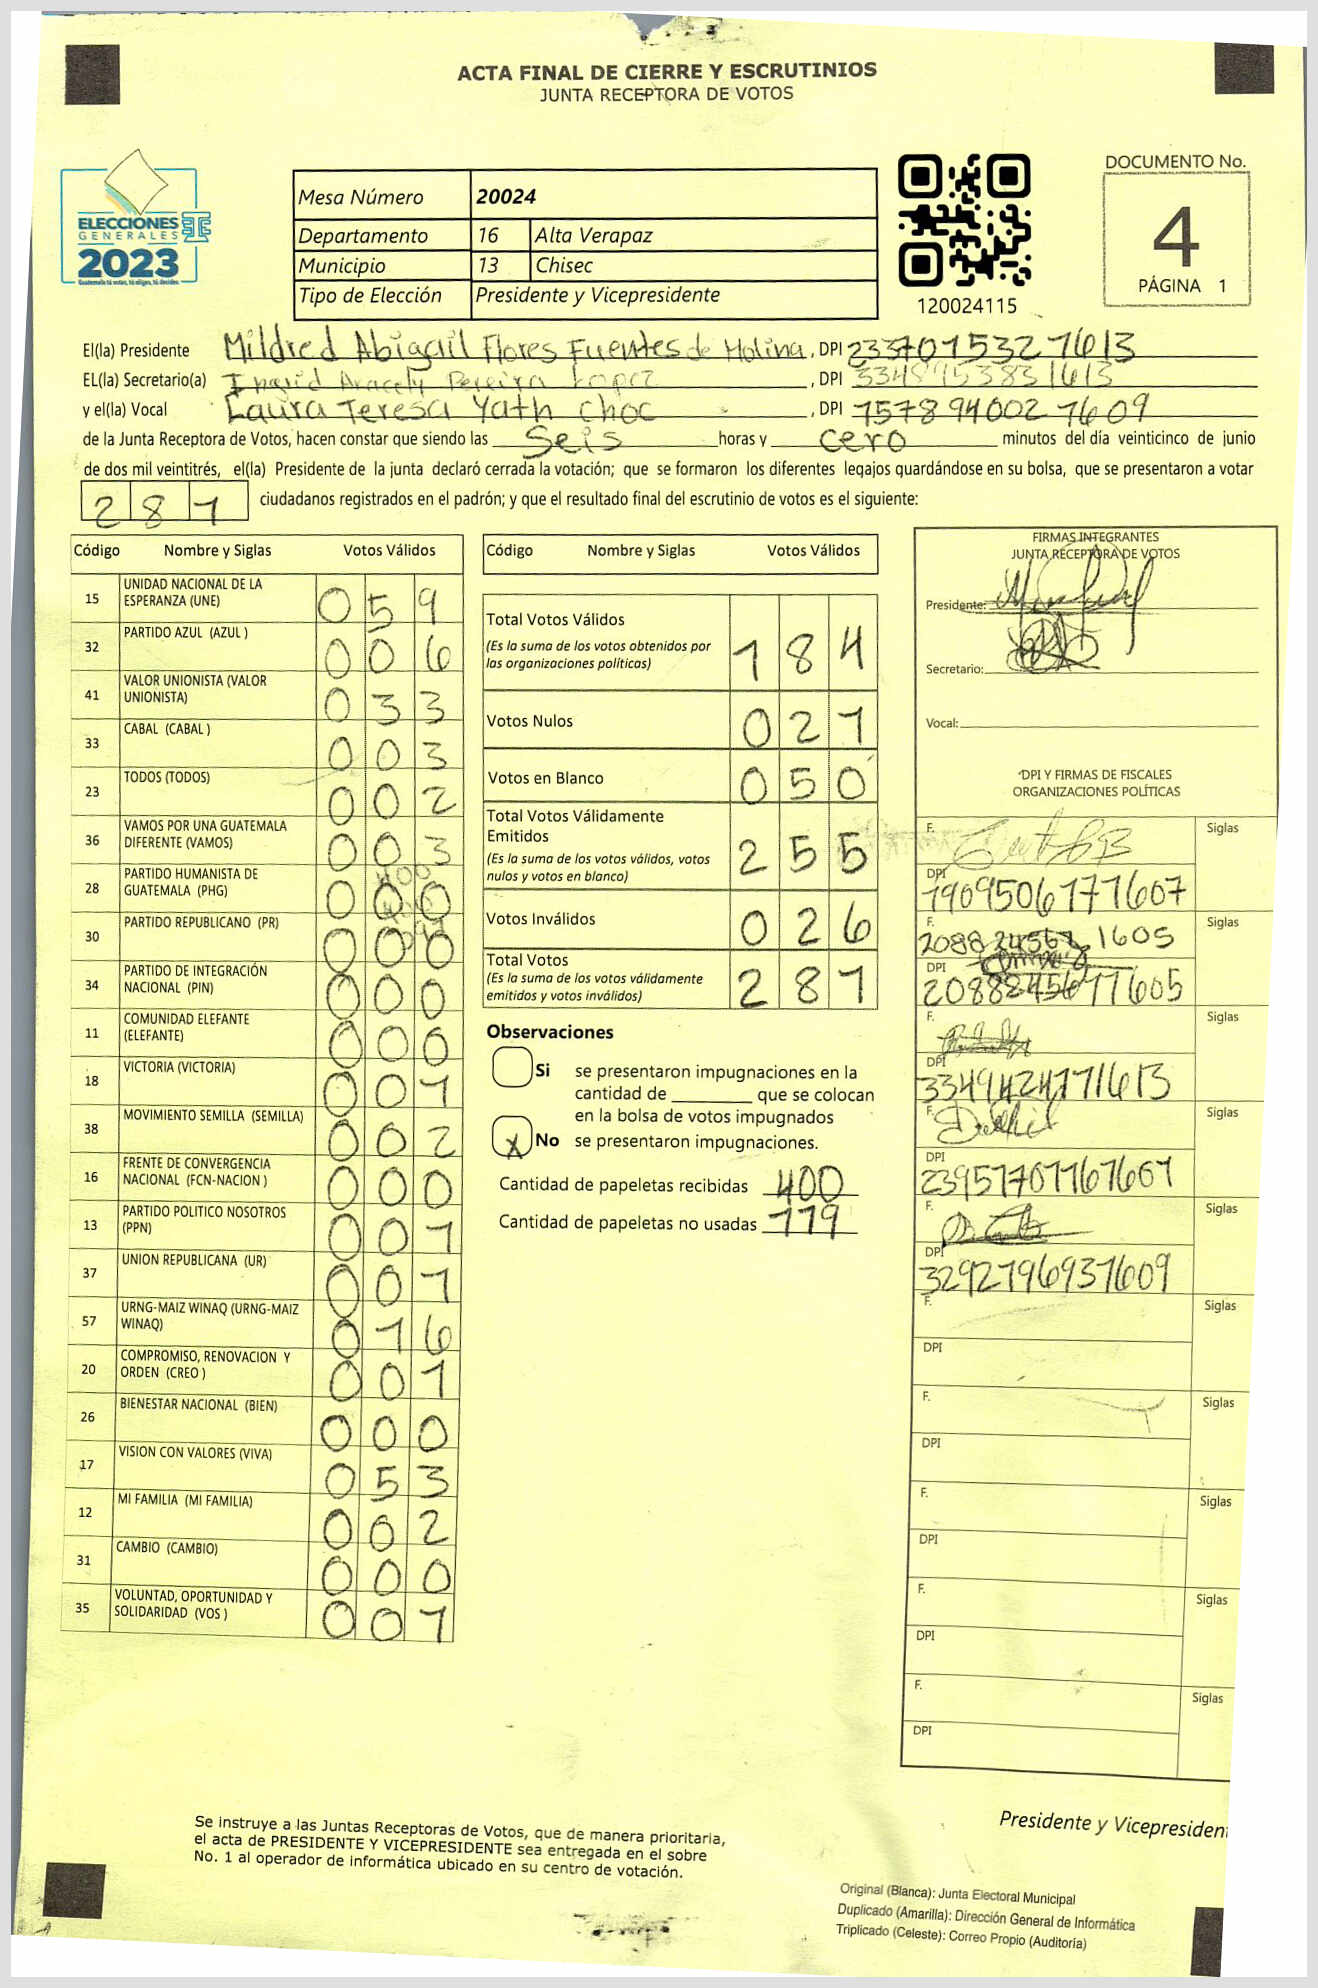 ACTA FINAL DE CIERRE Y ESCRUTINIOS
JUNTA RECEPTORA DE VOTOS
ELECCIONES
GENERALES
2023
Guatemala tú votas, tú eliges, tú decides
Mesa Número 20024
Departamento 16 Alta Verapaz
Municipio 13 Chisec
Tipo de Elección Presidente y Vicepresidente
120024115
DOCUMENTO No.
4
PÁGINA 1
El(la) Presidente Mildred Abigail Flores Fuentes de Molina, DPI 2337015321613
EL(la) Secretario(a) Ingrid Aracely Pereira Lopez, DPI 3348953831613
y el(la) Vocal Laura Teresa Yath Choc, DPI 1578940021609
de la Junta Receptora de Votos, hacen constar que siendo las Seis horas y cero minutos del día veinticinco de junio
de dos mil veintitrés, el(la) Presidente de la junta declaró cerrada la votación; que se formaron los diferentes legajos guardándose en su bolsa, que se presentaron a votar
281 ciudadanos registrados en el padrón; y que el resultado final del escrutinio de votos es el siguiente:
Código Nombre y Siglas Votos Válidos
15 UNIDAD NACIONAL DE LA ESPERANZA (UNE) 059
32 PARTIDO AZUL (AZUL ) 006
41 VALOR UNIONISTA (VALOR UNIONISTA) 033
33 CABAL (CABAL ) 003
23 TODOS (TODOS) 002
36 VAMOS POR UNA GUATEMALA DIFERENTE (VAMOS) 003
28 PARTIDO HUMANISTA DE GUATEMALA (PHG) 000
30 PARTIDO REPUBLICANO (PR) 000
34 PARTIDO DE INTEGRACIÓN NACIONAL (PIN) 000
11 COMUNIDAD ELEFANTE (ELEFANTE) 000
18 VICTORIA (VICTORIA) 001
38 MOVIMIENTO SEMILLA (SEMILLA) 002
16 FRENTE DE CONVERGENCIA NACIONAL (FCN-NACION ) 000
13 PARTIDO POLITICO NOSOTROS (PPN) 001
37 UNION REPUBLICANA (UR) 001
57 URNG-MAIZ WINAQ (URNG-MAIZ WINAQ) 016
20 COMPROMISO, RENOVACION Y ORDEN (CREO ) 001
26 BIENESTAR NACIONAL (BIEN) 000
17 VISION CON VALORES (VIVA) 053
12 MI FAMILIA (MI FAMILIA) 002
31 CAMBIO (CAMBIO) 000
35 VOLUNTAD, OPORTUNIDAD Y SOLIDARIDAD (VOS ) 001
Código Nombre y Siglas Votos Válidos
Total Votos Válidos 184
(Es la suma de los votos obtenidos por
las organizaciones políticas)
Votos Nulos 021
Votos en Blanco 050
Total Votos Válidamente
Emitidos 255
(Es la suma de los votos válidos, votos
nulos y votos en blanco)
Votos Inválidos 026
Total Votos 281
(Es la suma de los votos válidamente
emitidos y votos inválidos)
Observaciones
Si se presentaron impugnaciones en la
cantidad de ________ que se colocan
en la bolsa de votos impugnados
X No se presentaron impugnaciones.
Cantidad de papeletas recibidas 400
Cantidad de papeletas no usadas 119
FIRMAS INTEGRANTES
JUNTA RECEPTORA DE VOTOS
Presidente:
Secretario:
Vocal:
DPI Y FIRMAS DE FISCALES
ORGANIZACIONES POLÍTICAS
F. Siglas
DPI 1909506171607
F. Siglas
DPI
F. Siglas
DPI 3349424171613
F. Siglas
DPI
F. Siglas
DPI 3292796931609
F. Siglas
DPI
F. Siglas
DPI
F. Siglas
DPI
F. Siglas
DPI
F. Siglas
DPI
Se instruye a las Juntas Receptoras de Votos, que de manera prioritaria,
el acta de PRESIDENTE Y VICEPRESIDENTE sea entregada en el sobre
No. 1 al operador de informática ubicado en su centro de votación.
Presidente y Vicepresiden
Original (Blanca): Junta Electoral Municipal
Duplicado (Amarilla): Dirección General de Informática
Triplicado (Celeste): Correo Propio (Auditoría)